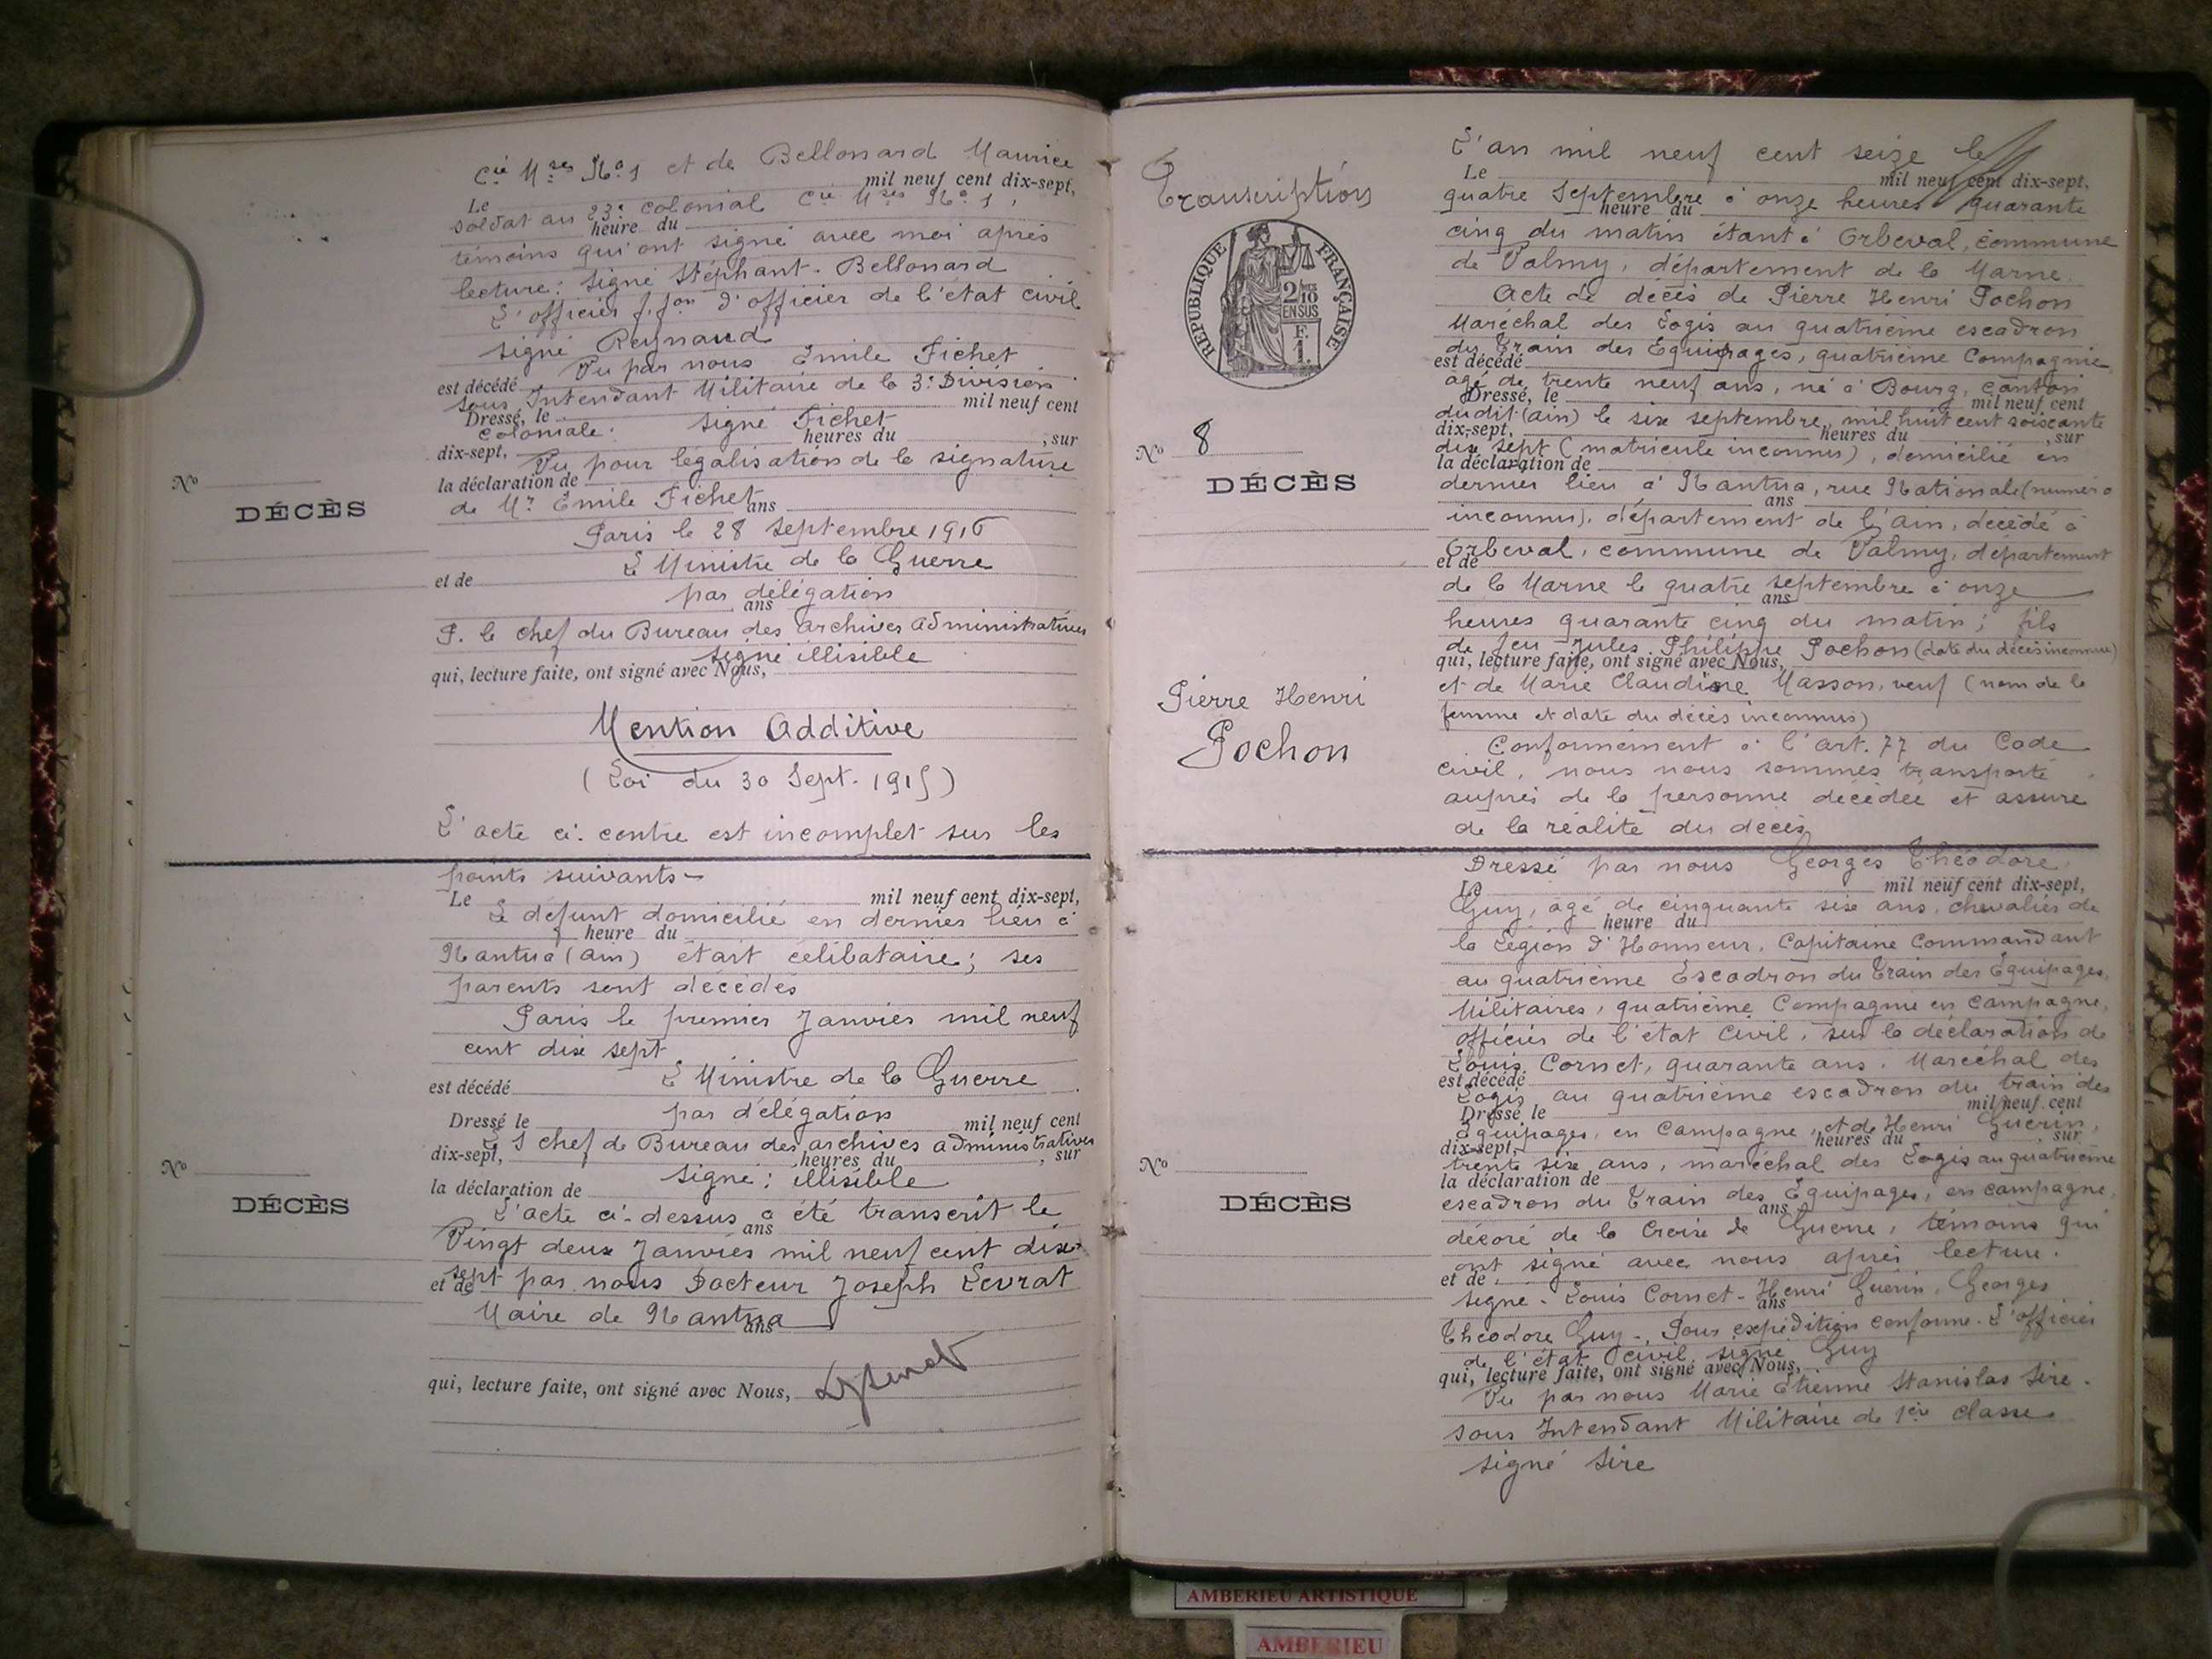 Cie Mses No 1 et de Bellonard Maurice
Le mil neuf cent dix-sept,
soldat au 23e colonial Cie Mses No 1,
heure du
témoins qui ont signé avec moi après
lecture: signé Stéphant. Bellonard
L'officier f.fon d'officier de l'état civil
signé Reynaud
Vu par nous Emile Fichet
est décédé
sous Intendant Militaire de la 3e Division
Dressé, le mil neuf cent
coloniale: signé Fichet
heures du , sur
dix-sept,
Vu pour légalisation de la signature
la déclaration de
de Mr Emile Fichet
ans
Paris le 28 septembre 1916
L Ministre de la Guerre
et de
par délégation
ans
P. le chef du Bureau des archives administratives
signé illisible
qui, lecture faite, ont signé avec Nous,
Mention Additive
(Loi du 30 Sept. 1915)
L'acte ci-contre est incomplet sur les
No
DÉCÈS
points suivants-
Le mil neuf cent dix-sept,
Le défunt domicilié en dernier lieu à
heure du
Nantua (Ain) était célibataire; ses
parents sont décédés
Paris le premier Janvier mil neuf
cent dix sept
L Ministre de la Guerre
est décédé
par délégation
Dressé le mil neuf cent
chef de Bureau des archives administratives
dix-sept, heures du , sur
signé: illisible
la déclaration de
L'acte ci-dessus a été transcrit le
ans
Vingt deux Janvier mil neuf cent dix
sept par nous Docteur Joseph Levrat
et de
Maire de Nantua
ans
qui, lecture faite, ont signé avec Nous,
No
DÉCÈS
Transcription
RÉPUBLIQUE FRANÇAISE
2/10 EN SUS
F. 1.
No 8
DÉCÈS
Pierre Henri
Pochon
L'an mil neuf cent seize le
Le mil neuf cent dix-sept,
quatre Septembre à onze heures quarante
heure du
cinq du matin étant à Orbeval, commune
de Valmy, département de la Marne.
Acte de décès de Pierre Henri Pochon
Maréchal des Logis au quatrième escadron
du Train des Equipages, quatrième Compagnie
est décédé
agé de trente neuf ans, né à Bourg, canton
Dressé, le mil neuf cent
dudit (ain) le six septembre mil huit cent soixante
dix-sept, heures du , sur
dix sept (matricule inconnu), domicilié en
la déclaration de
dernier lieu à Nantua, rue Nationale (numéro
ans
inconnu), département de l'ain, décédé à
Orbeval, commune de Valmy, département
et de
de la Marne le quatre septembre à onze
ans
heures quarante cinq du matin; fils
de feu Jules Philippe Pochon (date du décès inconnue)
qui, lecture faite, ont signé avec Nous,
et de Marie Claudine Masson, veuf (nom de la
femme et date du décès inconnus)
Conformément à l'art. 77 du Code
civil, nous nous sommes transporté
auprès de la personne décédée et assuré
de la réalité du décès
Dressé par nous Georges Théodore
Le mil neuf cent dix-sept,
Guy, agé de cinquante six ans, chevalier de
heure du
la Légion d'Honneur, Capitaine Commandant
au quatrième Escadron du Train des Equipages
Militaires, quatrième Compagnie en campagne,
officier de l'état civil, sur la déclaration de
Louis Cornet, quarante ans. Maréchal des
est décédé
Logis au quatrième escadron du train des
Dressé le mil neuf cent
équipages, en Campagne, et de Henri Guérin,
dix-sept, heures du , sur
trente six ans, maréchal des Logis au quatrième
la déclaration de
escadron du Train des Equipages, en campagne,
ans
décoré de la Croix de Guerre, témoins qui
ont signé avec nous après lecture.
et de
signé - Louis Cornet - Henri Guerin, Georges
ans
Théodore Guy -, Pour expédition conforme. L'officier
de l'état civil, signé Guy
qui, lecture faite, ont signé avec Nous,
Vu par nous Marie Etienne Stanislas Sire.
sous Intendant Militaire de 1ère classe
signé Sire
No
DÉCÈS
AMBERIEU ARTISTIQUE
AMBERIEU